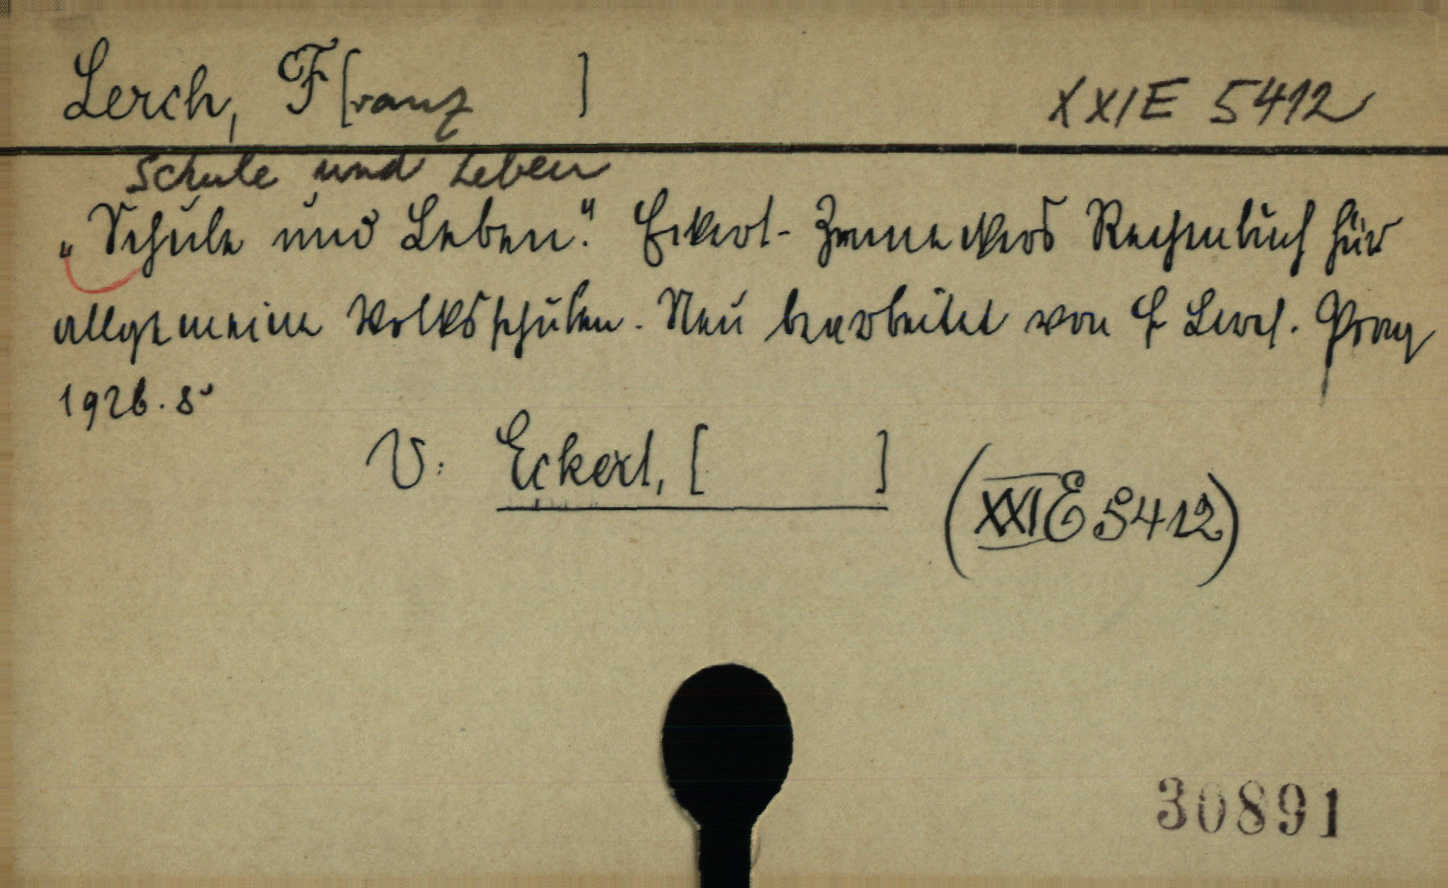 Lerch, F[ranz ]
XXIE 5412
Schule und Leben
„Schule und Leben." Eckert-Zenneckers Rechenbuch für
allgemeine Volksschulen. Neu bearbeitet von F Lerch. Prag
1926. 8°
V: Eckert, [ ]
(XXI E 5412)
30891